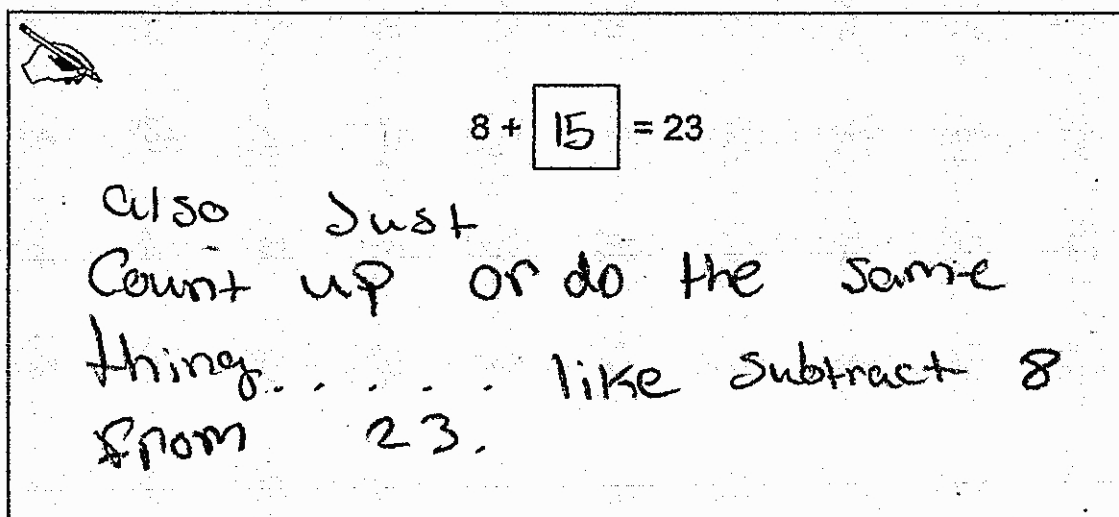 8 + 15 = 23
also Just
Count up or do the same
thing...... like subtract 8
from 23.